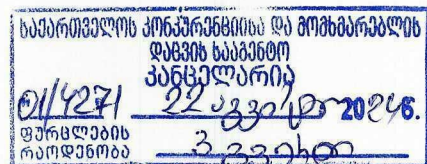 საქართველოს კონკურენციისა და მომხმარებლის
დაცვის სააგენტო
კანცელარია
01/4271 22 აგვისტო 2024წ.
ფურცლების
რაოდენობა 3 გვერდი